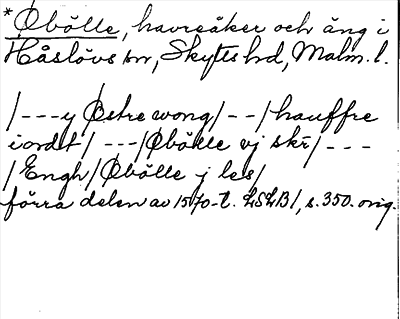 *Øbölle, havreåker och äng i
Håslövs sn, Skytts hd, Malm. l.
/---y Østre wong/--/hauffre
iordt/ ---/Øbölle vj skr̄/---
/Engh/Øbölle j les/
förra delen av 1570-t. LSLB1, s. 350. orig.